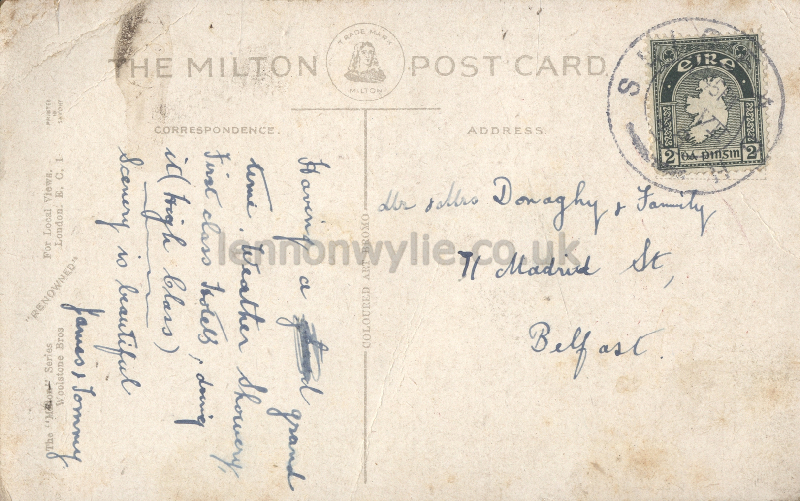 THE MILTON POST CARD
TRADE MARK
MILTON
CORRESPONDENCE.
ADDRESS
Having a grand
time. Weather Showery,
First class Hotels, doing
it (High Class)
Scenery is beautiful
James & Tommy
Mr & Mrs Donaghy & Family
71 Madrid St,
Belfast
éire
2 Dá pinsin 2
COLOURED ART PROMO
PRINTED IN SAXONY
For Local Views.
London. E. C. 1
"RENOWNED"
The "Milton" Series
Woolstone Bros
lennonwylie.co.uk